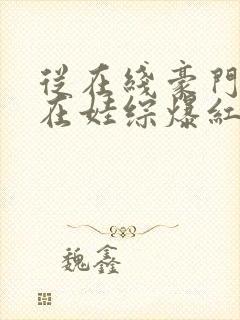 從在綫豪門
在娃綜爆紅
魏鑫